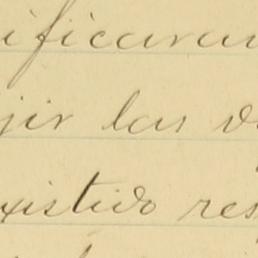 ificaran
jir las d
existido res